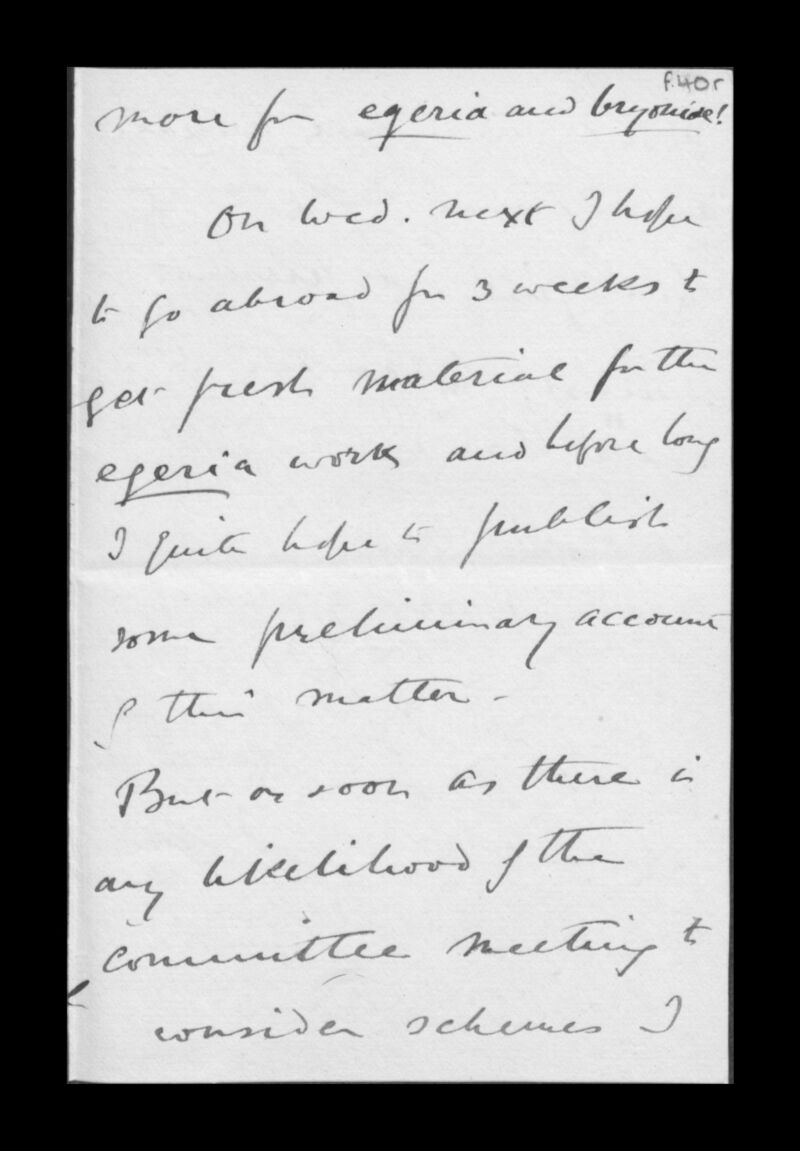 f.40r
more for egeria and bryoniae!
On Wed. next I hope
to go abroad for 3 weeks to
get fresh material for the
egeria work and before long
I quite hope to publish
some preliminary account
of this matter -
But as soon as there is
any likelihood of the
committee meeting to
consider schemes I